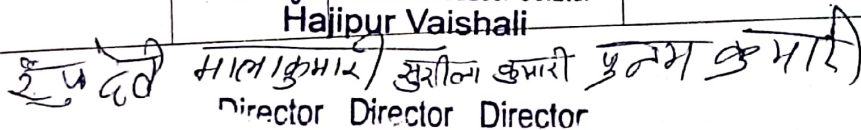 Hajipur Vaishali
देवी मालाकुमारी सुशीला कुमारी पुनम कुमारी
Director Director Director